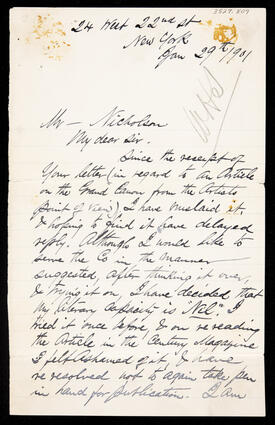 3527.809
24 West 22nd st
New York
Jan 29th 1901
Mr – Nicholson
My dear Sir.
Since the receipt of
Your letter (in regard to an Article
on the Grand Canon from the Artists
point of view) I have mislaid it,
& hoping to find it have delayed
reply. Although I would like to
serve the Co in the manner
suggested, after thinking it over,
& trying it on I have decided that
my literary capacity is "Nil" I
tried it once before, & on re reading
the Article in the Century Magazine
I felt ashamed of it, & have
re resolved not to again take pen
in hand for publication. I am